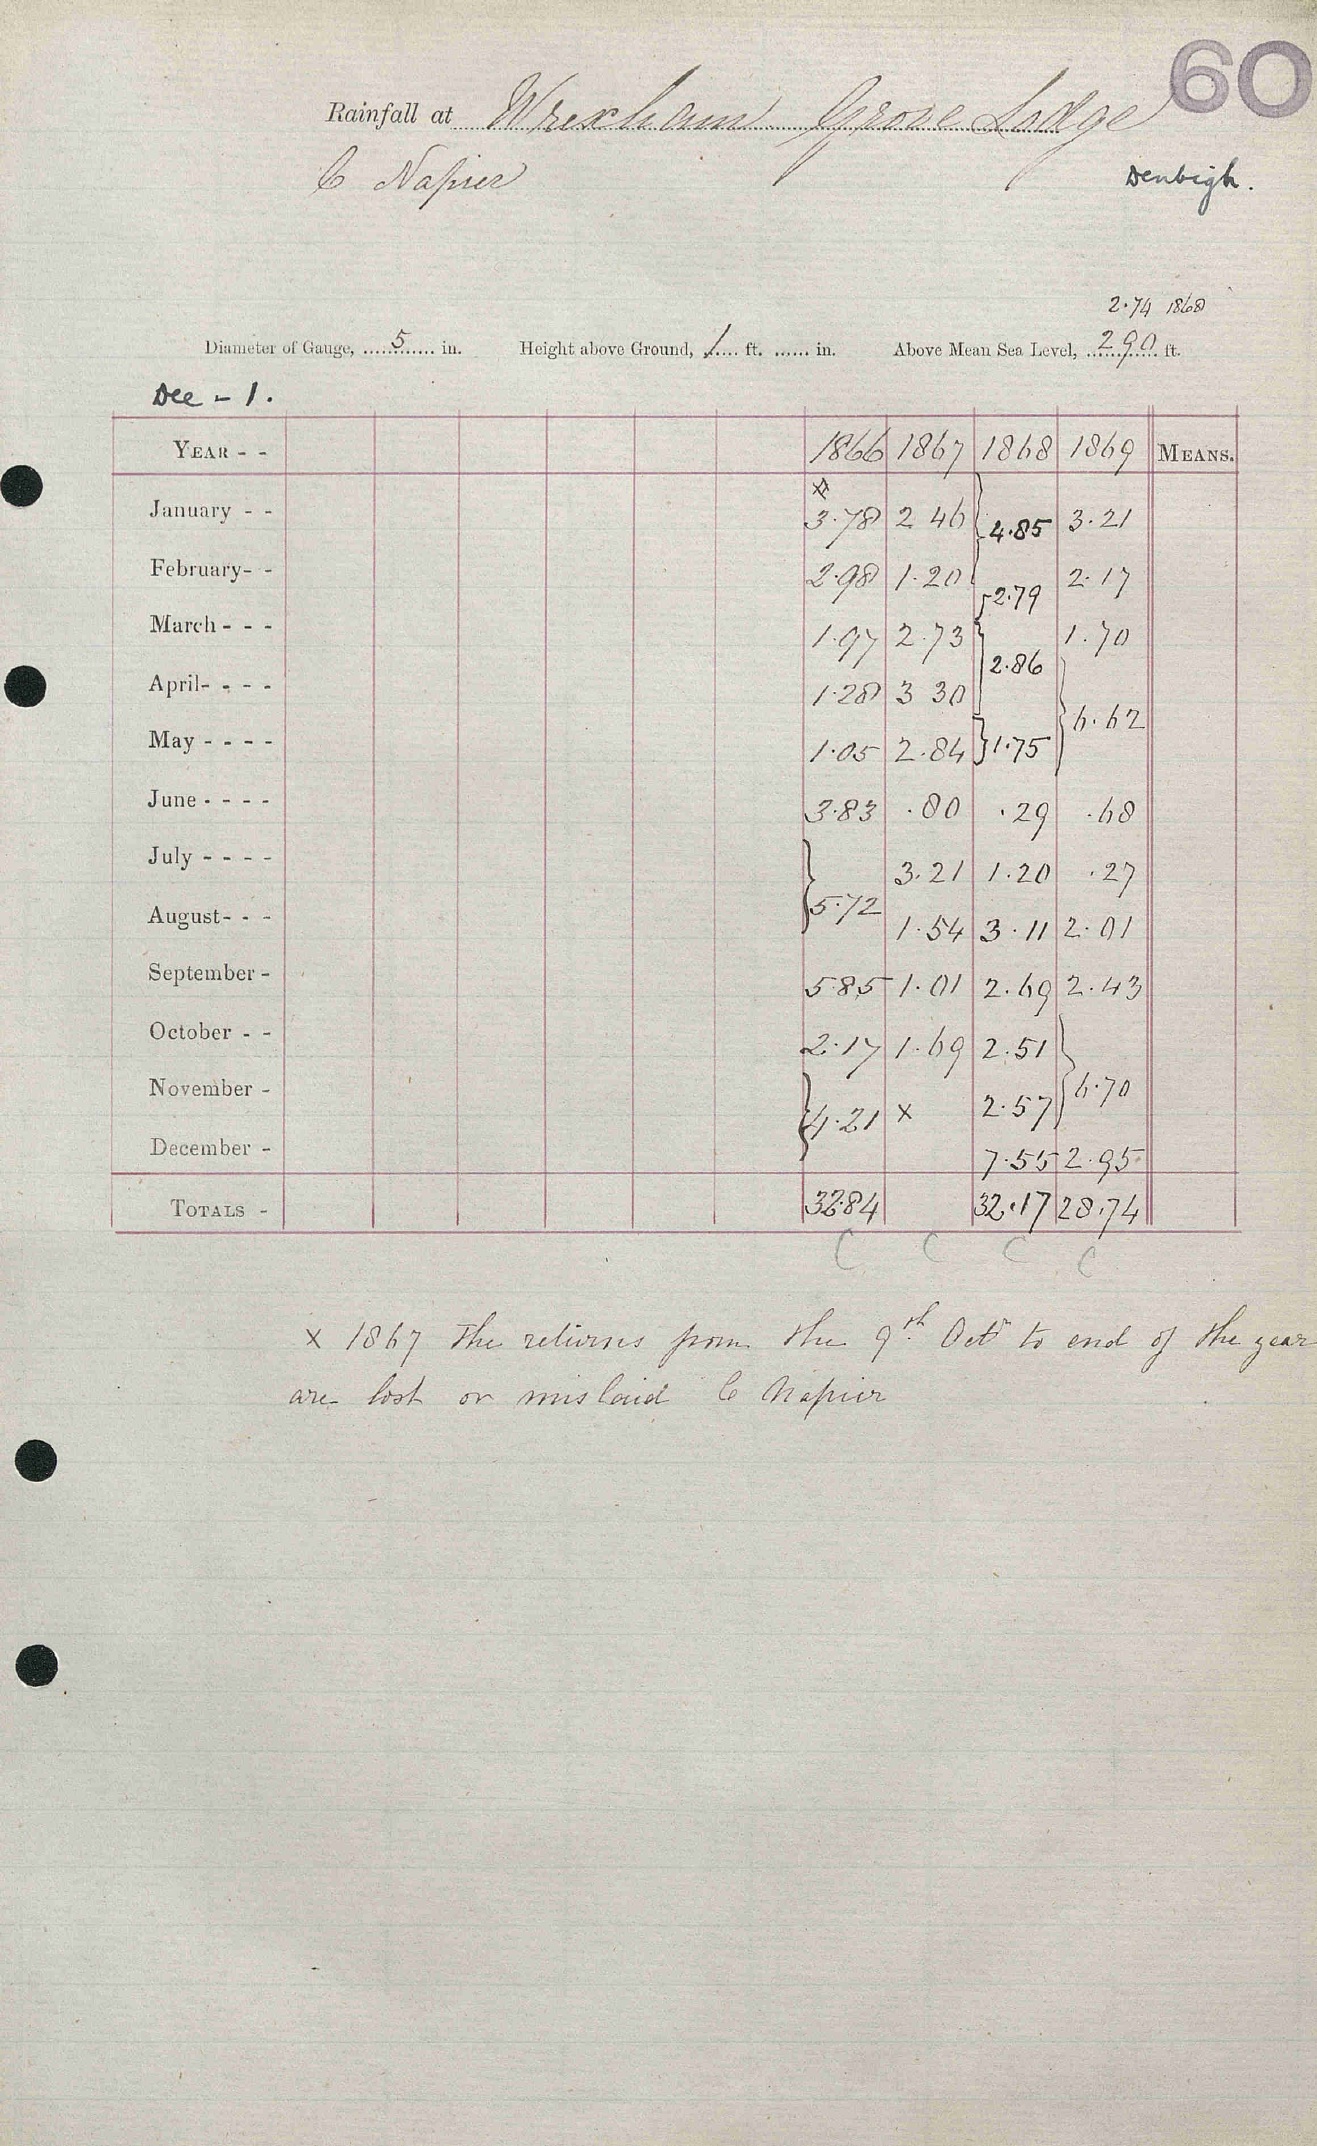 60
Rainfall at Wrexham Grove Lodge
C Napier Denbigh.
2.74 1868
Diameter of Gauge, 5 in. Height above Ground, 1 ft. in. Above Mean Sea Level, 290 ft.
Dee - 1.
YEAR - - 1866 1867 1868 1869 MEANS.
x
January - - 3.78 2 46 4.85 3.21
February- - 2.98 1.20 2.79 2.17
March - - - 1.97 2.73 2.86 1.70
April- - - - 1.28 3 30
May - - - - 1.05 2.84 1.75 6.62
June - - - - 3.83 .80 .29 .68
July - - - - 3.21 1.20 .27
August- - - 5.72 1.54 3.11 2.01
September - 5.85 1.01 2.69 2.43
October - - 2.17 1.69 2.51
November - 4.21 x 2.57 6.70
December - 7.55 2.95
TOTALS - 32.84 32.17 28.74
C C C C
x 1867 The returns from the 9th Octr to end of the year
are lost or mislaid C Napier